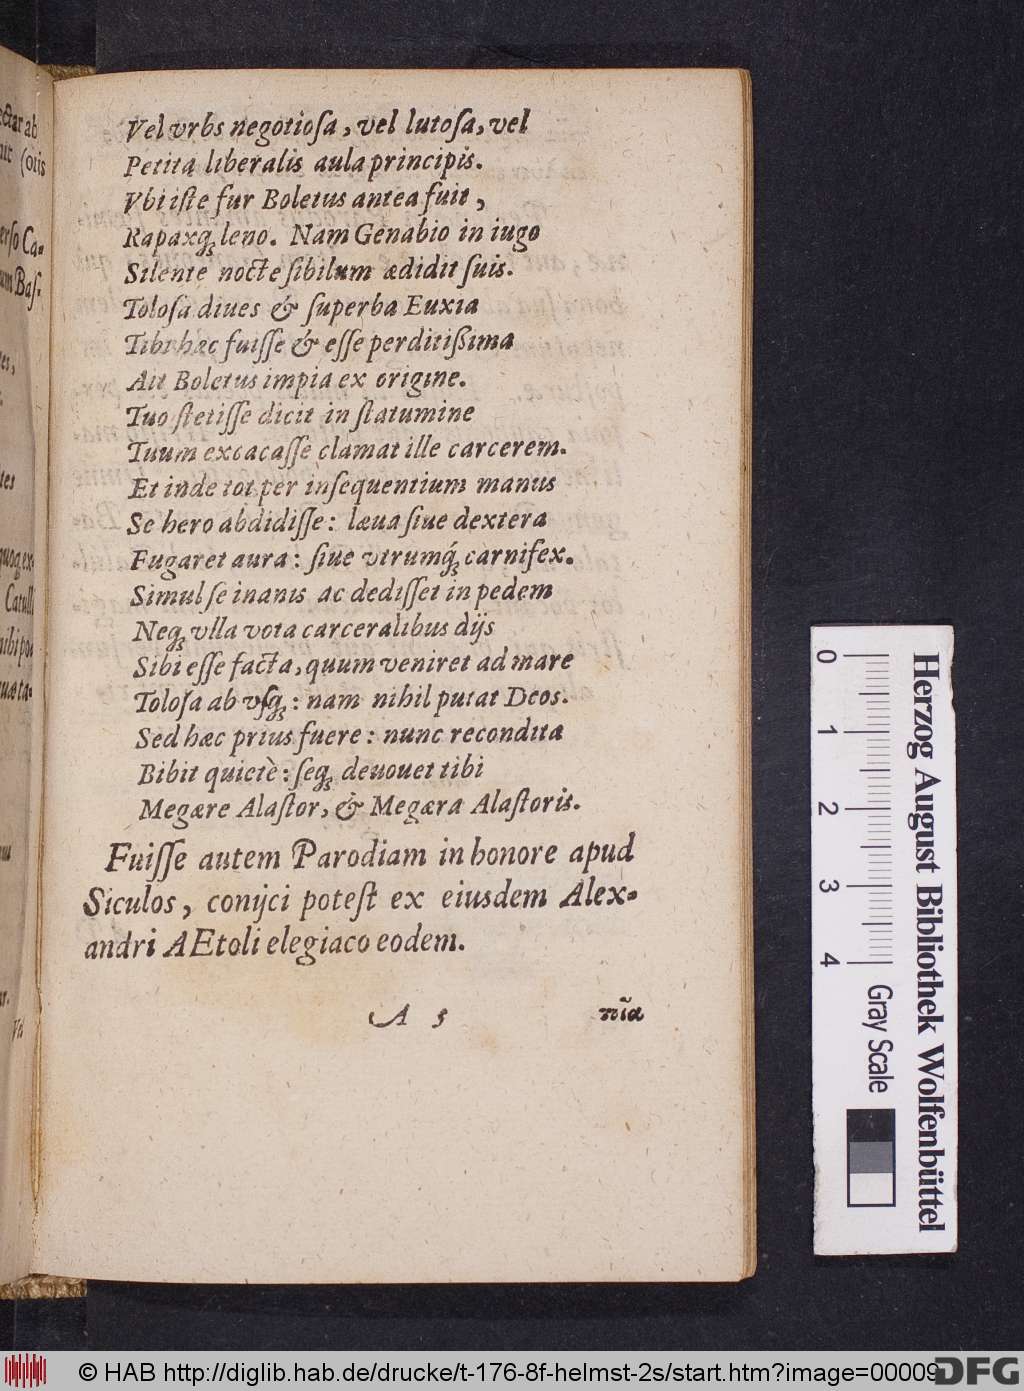 Vel vrbs negotioſa, vel lutoſa, vel
Petita liberalis aula principis.
Vbi iſte fur Boletus antea fuit,
Rapaxq́; leno. Nam Genabio in iugo
Silente nocte ſibilum ædidit ſuis.
Toloſa diues & ſuperba Euxia
Tibi hæc fuiſſe & eſſe perditißima
Ait Boletus impia ex origine.
Tuo ſtetiſſe dicit in ſtatumine
Tuum excacaſſe clamat ille carcerem.
Et inde tot per inſequentium manus
Se hero abdidiſſe: læua ſiue dextera
Fugaret aura: ſiue vtrumq́; carnifex.
Simul ſe inanis ac dediſſet in pedem
Neq; vlla vota carceralibus dijs
Sibi eſſe facta, quum veniret ad mare
Toloſa ab vſq;: nam nihil putat Deos.
Sed hæc prius fuere: nunc recondita
Bibit quietè: ſeq; deuouet tibi
Megære Alaſtor, & Megæra Alaſtoris.
Fuiſſe autem Parodiam in honore apud
Siculos, conijci poteſt ex eiusdem Alex-
andri AEtoli elegiaco eodem.
A 5
ctar ab
(oris
erſo Ca-
um Baſ-
quoq; ex-
Catulli
Herzog August Bibliothek Wolfenbüttel
0 1 2 3 4
Gray Scale
© HAB http://diglib.hab.de/drucke/t-176-8f-helmst-2s/start.htm?image=00009
DFG